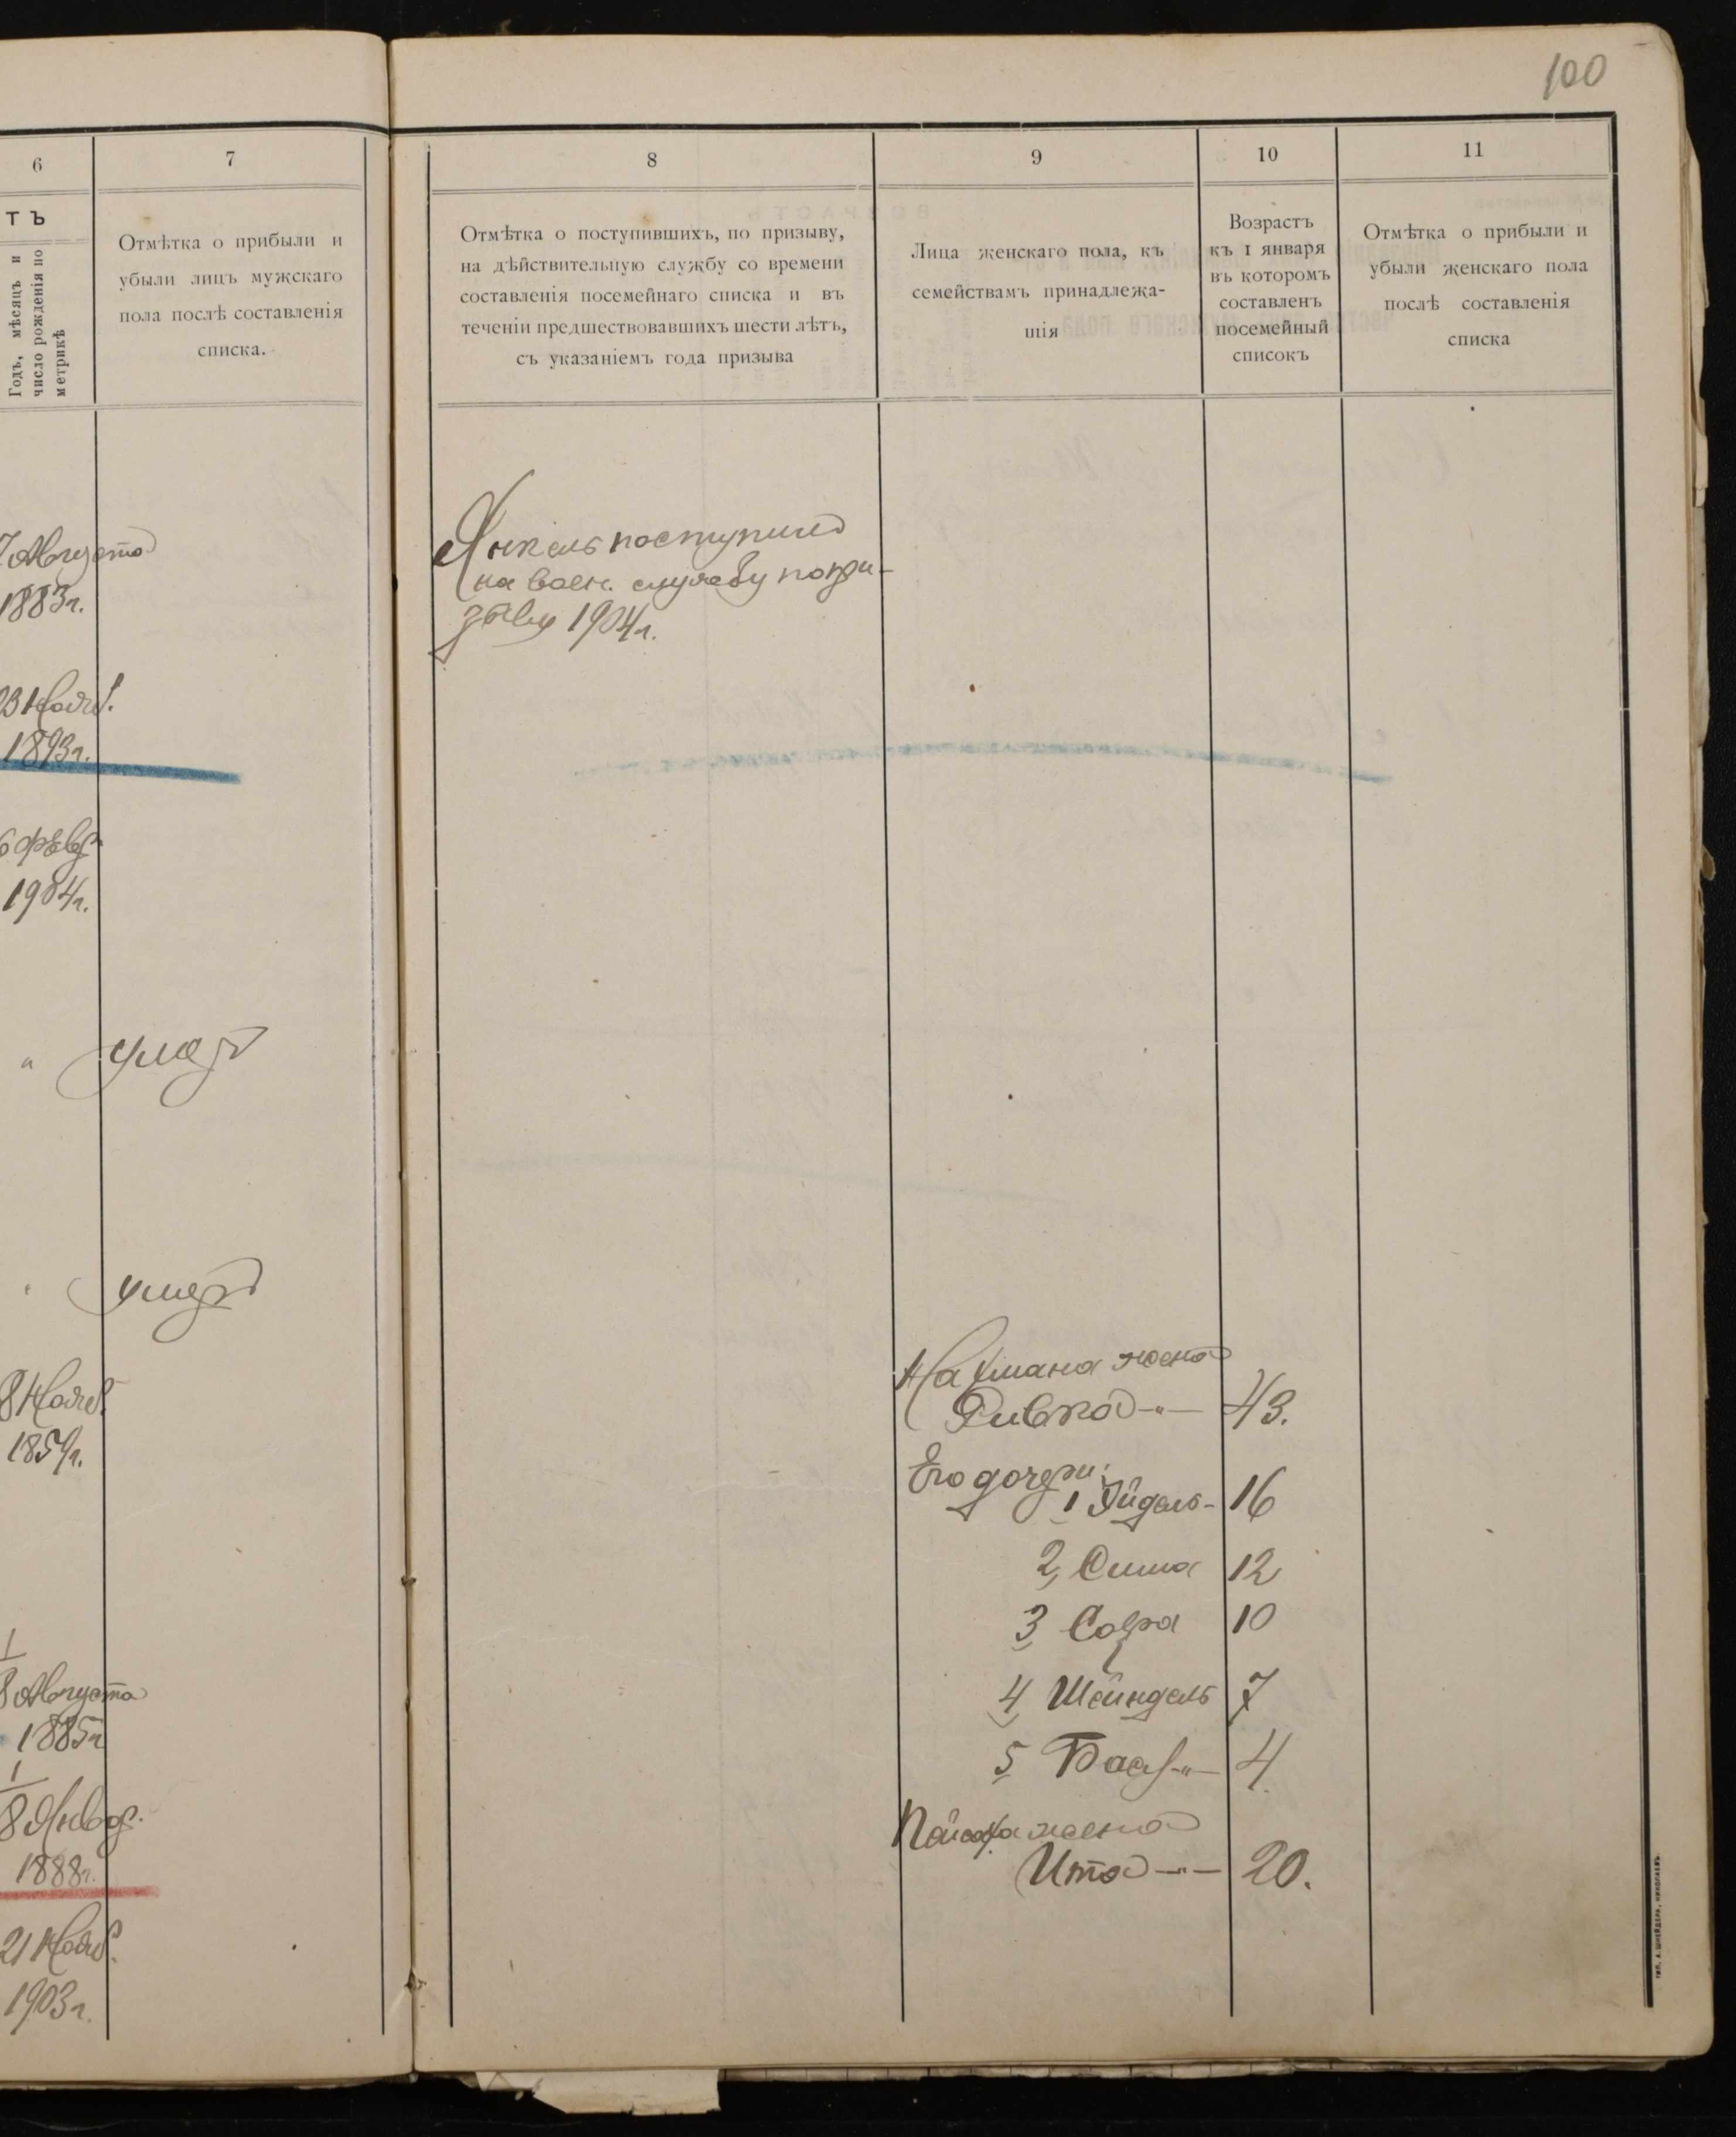 100
6
7
8
9
10
11
ТЪ
Годъ, мѣсяцъ и
число рожденія по
метрикѣ
Отмѣтка о прибыли и
убыли лицъ мужскаго
пола послѣ составленія
списка.
Отмѣтка о поступившихъ, по призыву,
на дѣйствительную службу со времени
составленія посемейнаго списка и въ
теченіи предшествовавшихъ шести лѣтъ,
съ указаніемъ года призыва
Лица женскаго пола, къ
семействамъ принадлежа-
щія
Возрастъ
къ 1 января
въ которомъ
составленъ
посемейный
списокъ
Отмѣтка о прибыли и
убыли женскаго пола
послѣ составленія
списка
Янкель поступилъ
на воен. службу по при-
зыву 1904 г.
7 Августа
1883 г.
23 Нояб.
1893 г.
6 Февр.
1904 г.
" умеръ
" умеръ
8 Нояб.
1859 г.
Нахмана жена
Ривка -"- 43.
Его дочери:
1 Эйдель - 16
2, Сима 12
3 Сора 10
4 Шейндель 7
5 Бася -"- 4.
1
8 Августа
1885 г
1
8 Январ.
1888 г.
Пейсаха жена
Ита -"- 20.
21 Нояб.
1903 г.
тип. А. Шнейдера, Николаевъ.